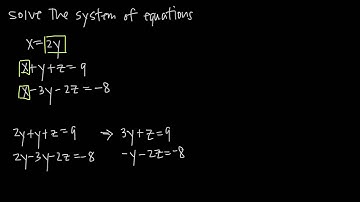 solve the system of equations
x=2y
x+y+z=9
x-3y-2z=-8
2y+y+z=9 → 3y+z=9
2y-3y-2z=-8 -y-2z=-8